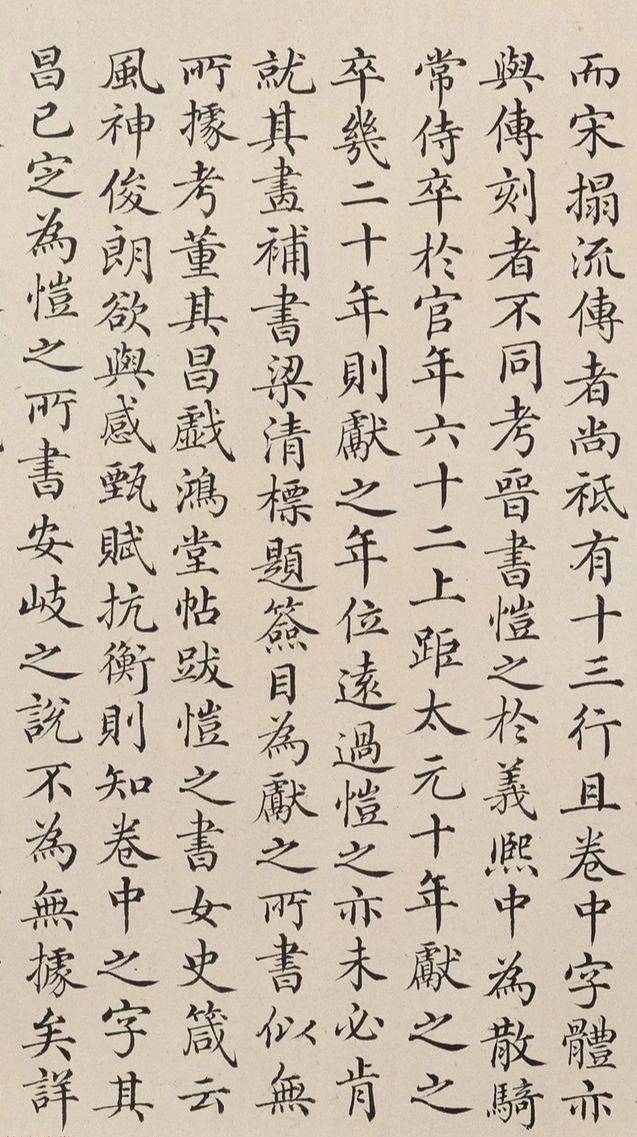 而宋搨流傳者尚祗有十三行且卷中字體亦
與傳刻者不同考晉書愷之於義熙中為散騎
常侍卒於官年六十二上距太元十年獻之之
卒幾二十年則獻之年位遠過愷之亦未必肯
就其畫補書梁清標題簽目為獻之所書似無
所據考董其昌戲鴻堂帖跋愷之書女史箴云
風神俊朗欲與感甄賦抗衡則知卷中之字其
昌已定為愷之所書安岐之說不為無據矣詳